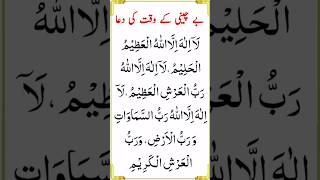 بے چینی کے وقت کی دعا
لَآ اِلٰهَ اِلَّا اللهُ الْعَظِيْمُ
الْحَلِيْمُ، لَآ اِلٰهَ اِلَّا اللهُ
رَبُّ الْعَرْشِ الْعَظِيْمُ، لَآ
اِلٰهَ اِلَّا اللهُ رَبُّ السَّمَاوَاتِ
وَ رَبُّ الْاَرْضِ، وَرَبُّ
الْعَرْشِ الْكَرِيْمِ